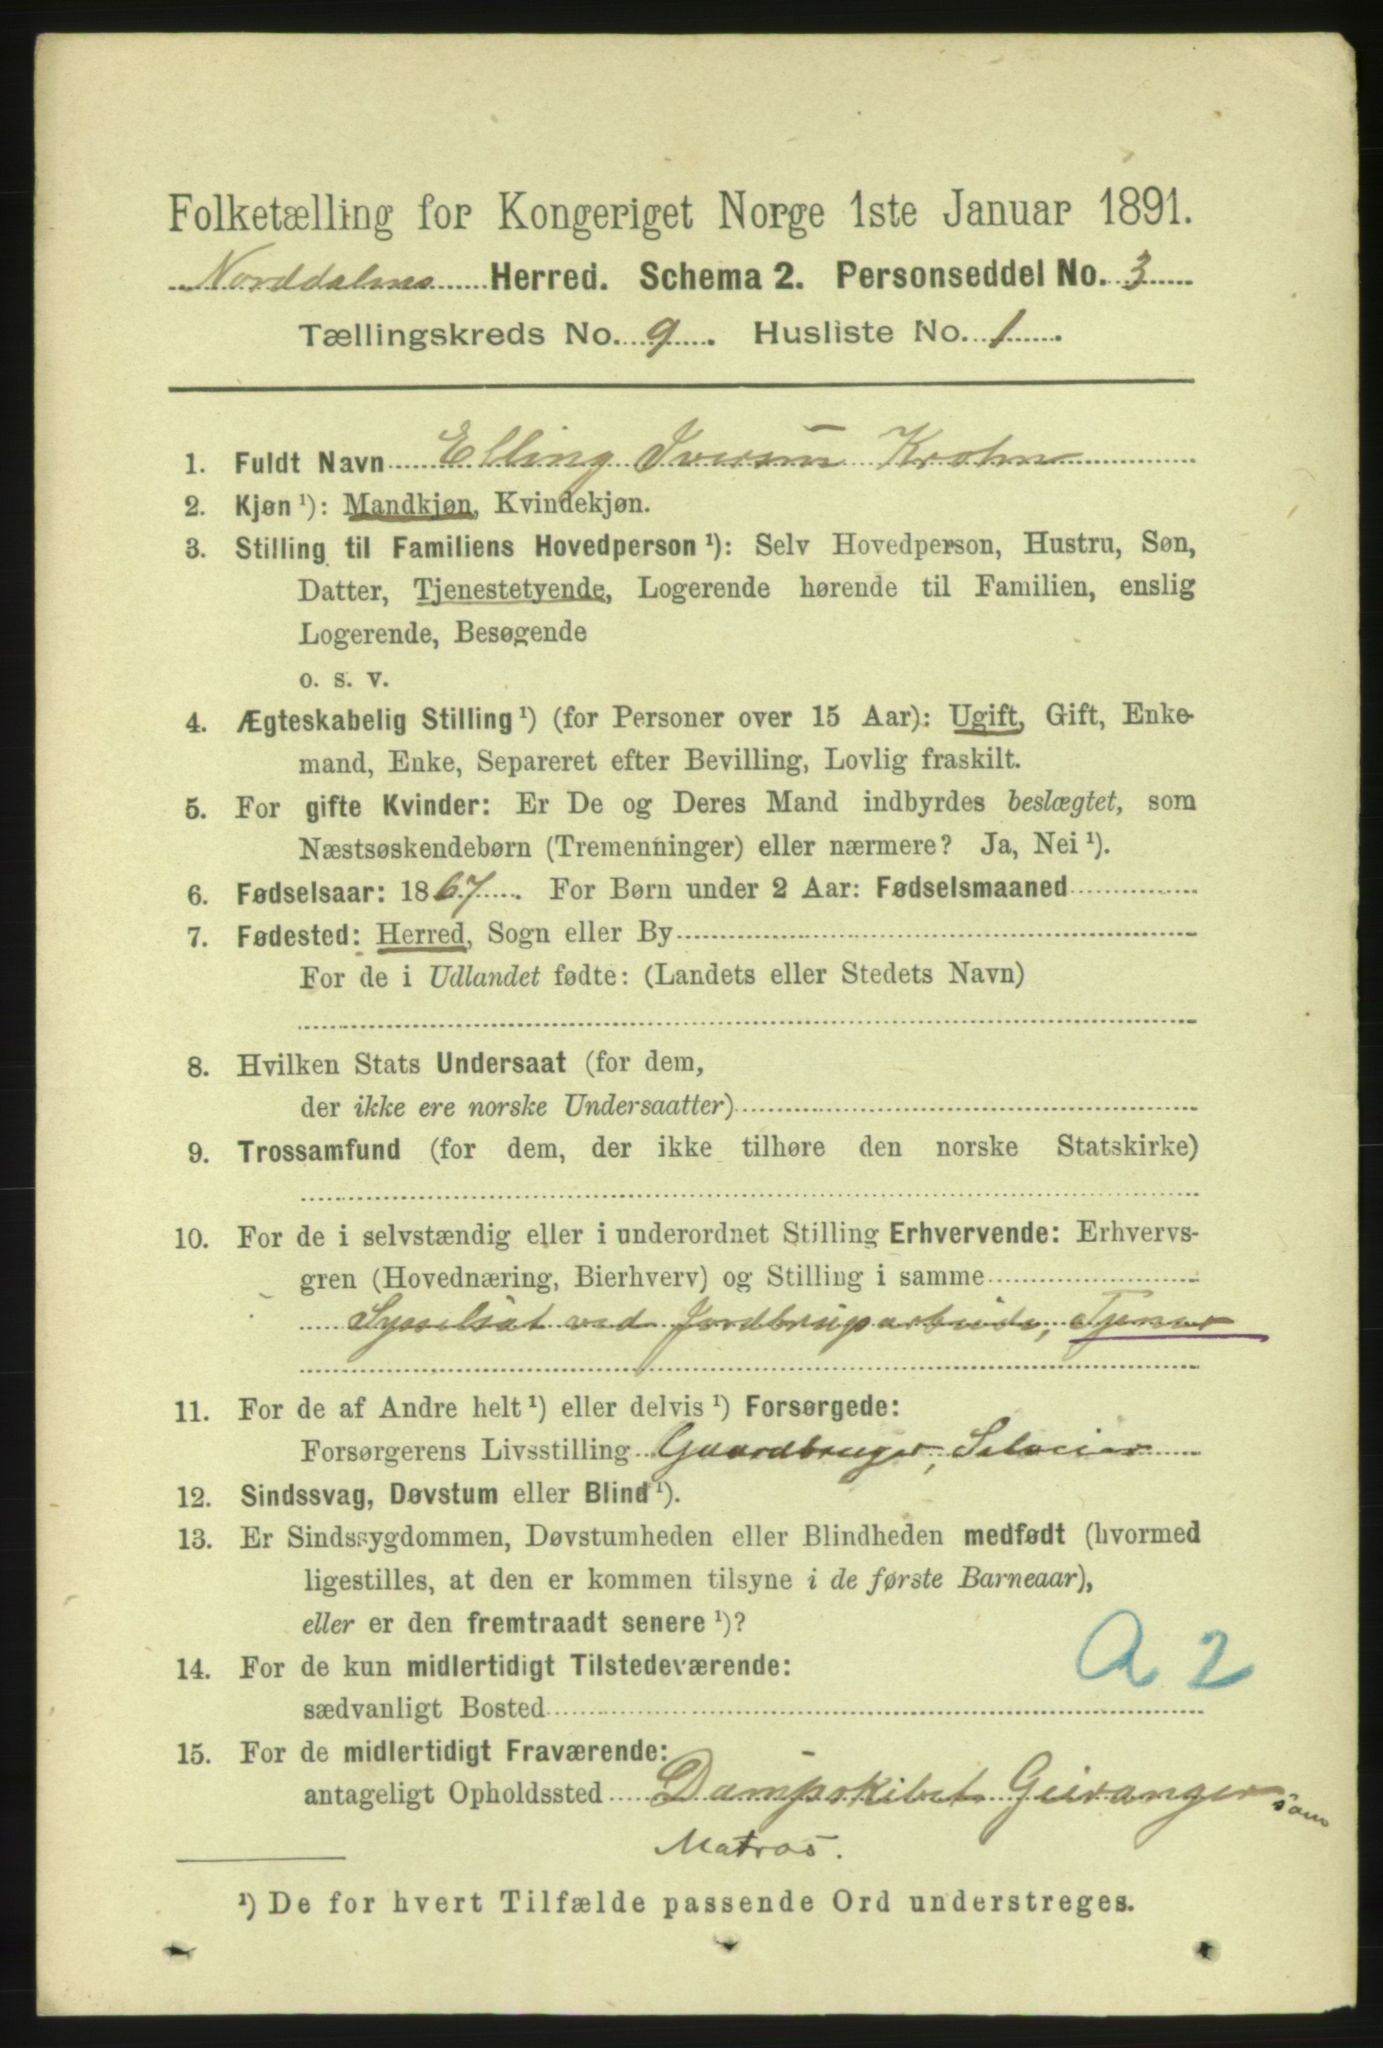 Folketælling for Kongeriget Norge 1ste Januar 1891.
Norddalens Herred. Schema 2. Personseddel No. 3
Tællingskreds No. 9. Husliste No. 1.
1. Fuldt Navn Elling Iversen Krohn
2. Kjøn ¹): Mandkjøn, Kvindekjøn.
3. Stilling til Familiens Hovedperson ¹): Selv Hovedperson, Hustru, Søn,
Datter, Tjenestetyende, Logerende hørende til Familien, enslig
Logerende, Besøgende
o. s. v.
4. Ægteskabelig Stilling ¹) (for Personer over 15 Aar): Ugift, Gift, Enke-
mand, Enke, Separeret efter Bevilling, Lovlig fraskilt.
5. For gifte Kvinder: Er De og Deres Mand indbyrdes beslægtet, som
Næstsøskendebørn (Tremenninger) eller nærmere? Ja, Nei ¹).
6. Fødselsaar: 1867. For Børn under 2 Aar: Fødselsmaaned
7. Fødested: Herred, Sogn eller By
For de i Udlandet fødte: (Landets eller Stedets Navn)
8. Hvilken Stats Undersaat (for dem,
der ikke ere norske Undersaatter)
9. Trossamfund (for dem, der ikke tilhøre den norske Statskirke)
10. For de i selvstændig eller i underordnet Stilling Erhvervende: Erhvervs-
gren (Hovednæring, Bierhverv) og Stilling i samme
Sysselsat ved Jordbrugsarbeide, Tjener
11. For de af Andre helt ¹) eller delvis ¹) Forsørgede:
Forsørgerens Livsstilling Gaardbruger, Selveier
12. Sindssvag, Døvstum eller Blind ¹).
13. Er Sindssygdommen, Døvstumheden eller Blindheden medfødt (hvormed
ligestilles, at den er kommen tilsyne i de første Barneaar),
eller er den fremtraadt senere ¹)?
14. For de kun midlertidigt Tilstedeværende:
sædvanligt Bosted
A 2
15. For de midlertidigt Fraværende:
antageligt Opholdssted Dampskibet Geiranger som
Matros.
¹) De for hvert Tilfælde passende Ord understreges.